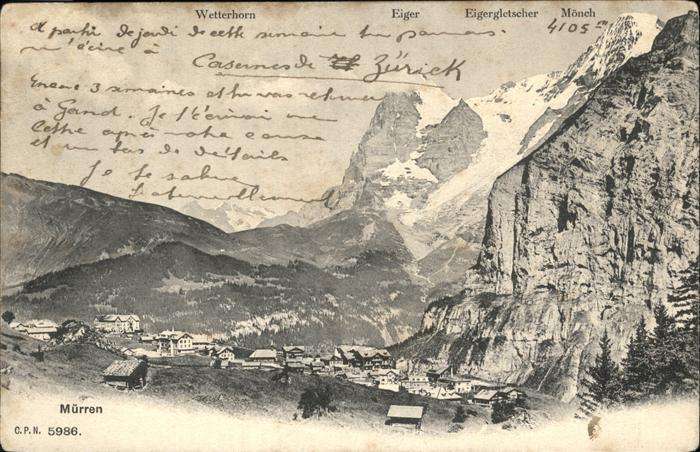 Wetterhorn Eiger Eigergletscher Mönch
A partir de jeudi de cette semaine tu pourras
m'écrire à
4105 m
Casernes de Zürich
Encore 3 semaines et tu vas
à Gand. Je t'écrirai une
lettre après notre course
et un tas de détails
Je te salue
Mürren
C.P.N. 5986.